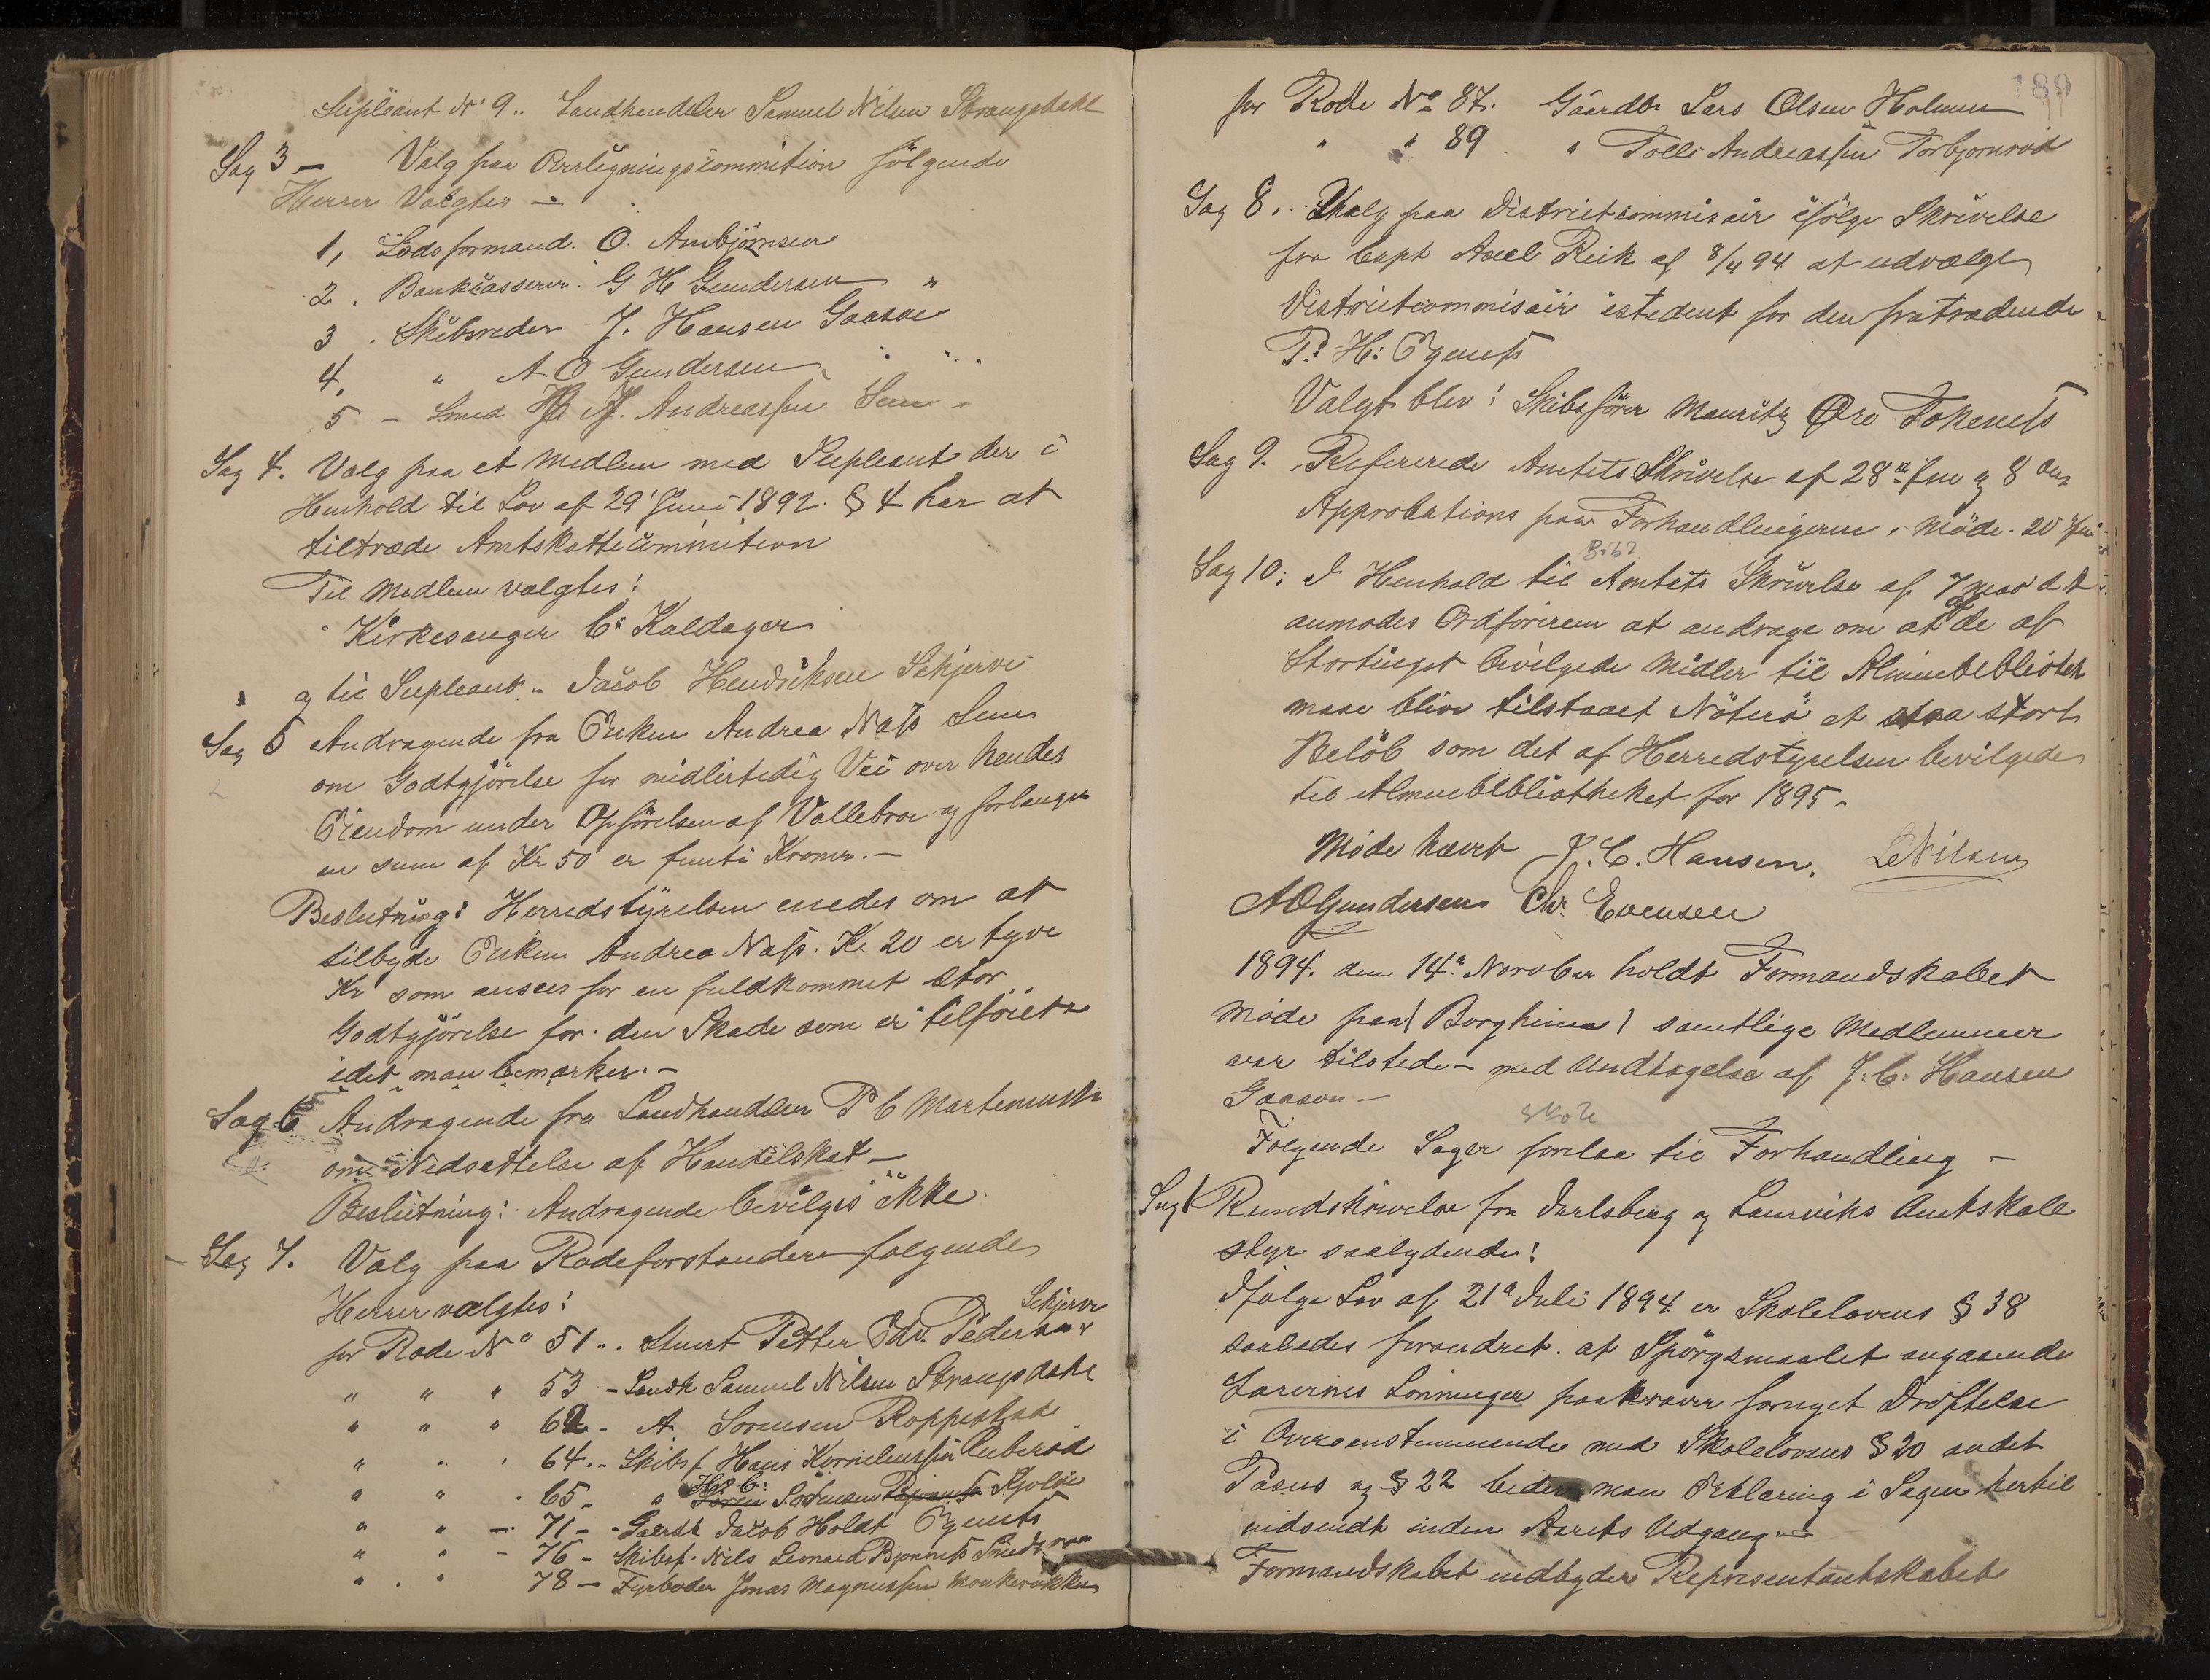 Supleant N° 9.. Landhandeler Samuel Nilsen Strangsdahl
Sag 3 — Valg paa Overligningscommition følgende
Herrer Valgtes —
1, Lodsformand. O. Ambjörnsen
2. Bankcasserer. G H Gundersen "
3. Skibsreder J. Hansen Gaasøe
4. " A. O Gundersen
5 - Smed H. A. Andreassen Sem -
Sag 4. Valg paa et Medlem med Supleant der i
Henhold til Lov af 29' Juni 1892. § 4 har at
tiltræde Amtskattecommition
Til Medlem valgtes!
Kirkesanger C. Kaldager
og til Supleant.. Jacob Hendriksen Schjerve
Sag 5 Andragende fra Enken Andrea Næss Sem
om Godtgjörelse for midlertidig Vei over hendes
Eiendom under Opförelsen af Vallebroe og forlanger
en sum af Kr 50 er femti Kroner. —
Beslutning: Herredstyrelsen enedes om at
tilbyde Enken Andrea Næss. Kr 20 er tyve
Kr som ansees for en fuldkommet stor
Godtgjörelse for den Skade som er tilföiet
idet man bemærker. —
Sag 6 Andragende fra Landhandler P C Martinussen
om Nedsættelse af Handelskat —
Beslutning: Andragende bevilges ikke.
Sag 7. Valg paa Rodeforstandere følgende
Herrer valgtes!
Schjerve
for Rode N° 51... Stuert Petter Edv. Pedersen
" " " 53 - Landh Samuel Nilsen Strangsdahl
" " " 62 - A. Sorensen Roppestad
" " " 64. - Skibsf. Hans Korneliussen Buberød
H. C.
" " " 65 - " Sören Sörensen Skjolöe
" " - 71 - Gaardb Jacob Holdt Ogents
" " - 76 - Skibsf. Nils Leonard Bjonness
" " 78 - Fyrbøder Jonas Magnussen
189
for Rode N° 87. Gaardbr Lars Olsen Holmen
" " 89 " Tolle Andreassen Torbjornrød
Sag 8.. Valg paa Districtcommisair ifölge Skrivelse
fra Capt Axel Rieck af 8/4 94 at udvælge
Districtcommisair istedent for den fratrædende
P. H: Ogents
Valgt blev! Skibsfører Mauritz Øre Tokenes
Sag 9. Refererede Amtets Skrivelse af 28de Juni og 8 Aug
Approbations paa Forhandlingerne i Möde 20 Juni
Bibl.
Sag 10: I Henhold til Amtets Skrivelse af 7 mai d. A
anmodes Ordföreren at andrage om at af de af
Stortinget bevilgede Midler til Almuebibliotek
maae blive tilstaaet Nöterö et saa stort
Belöb som det af Herredstyrelsen bevilgede
til Almuebibliotheket for 1895.
Møde hævet J. C. Hansen. L. Nilsen
A O Gundersen Chr. Evensen
1894. den 14de November holdt Formandskabet
Möde paa ( Borgheim ) samtlige Medlemmer
var tilstede — med Undtagelse af J. C. Hansen
Gaasøen —
Skole
Følgende Sager forelaa til Forhandling —
Sag 1 Rundskrivelse fra Jarlsberg og Laurviks Amtskole
styre saalydende!
Ifølge Lov af 21de Juli 1894 er Skolelovens § 38
saaledes forandret. at Spörgsmaalet angaaende
Lærernes Lönninger paakræver fornyet Dröftelse
i Overenstemmende med Skolelovens § 20 andet
Pasus og § 22 beder man Erklæring i Sagen hertil
indsendt inden Aarets Udgang. —
Formandskabet indbyder Representantskabet